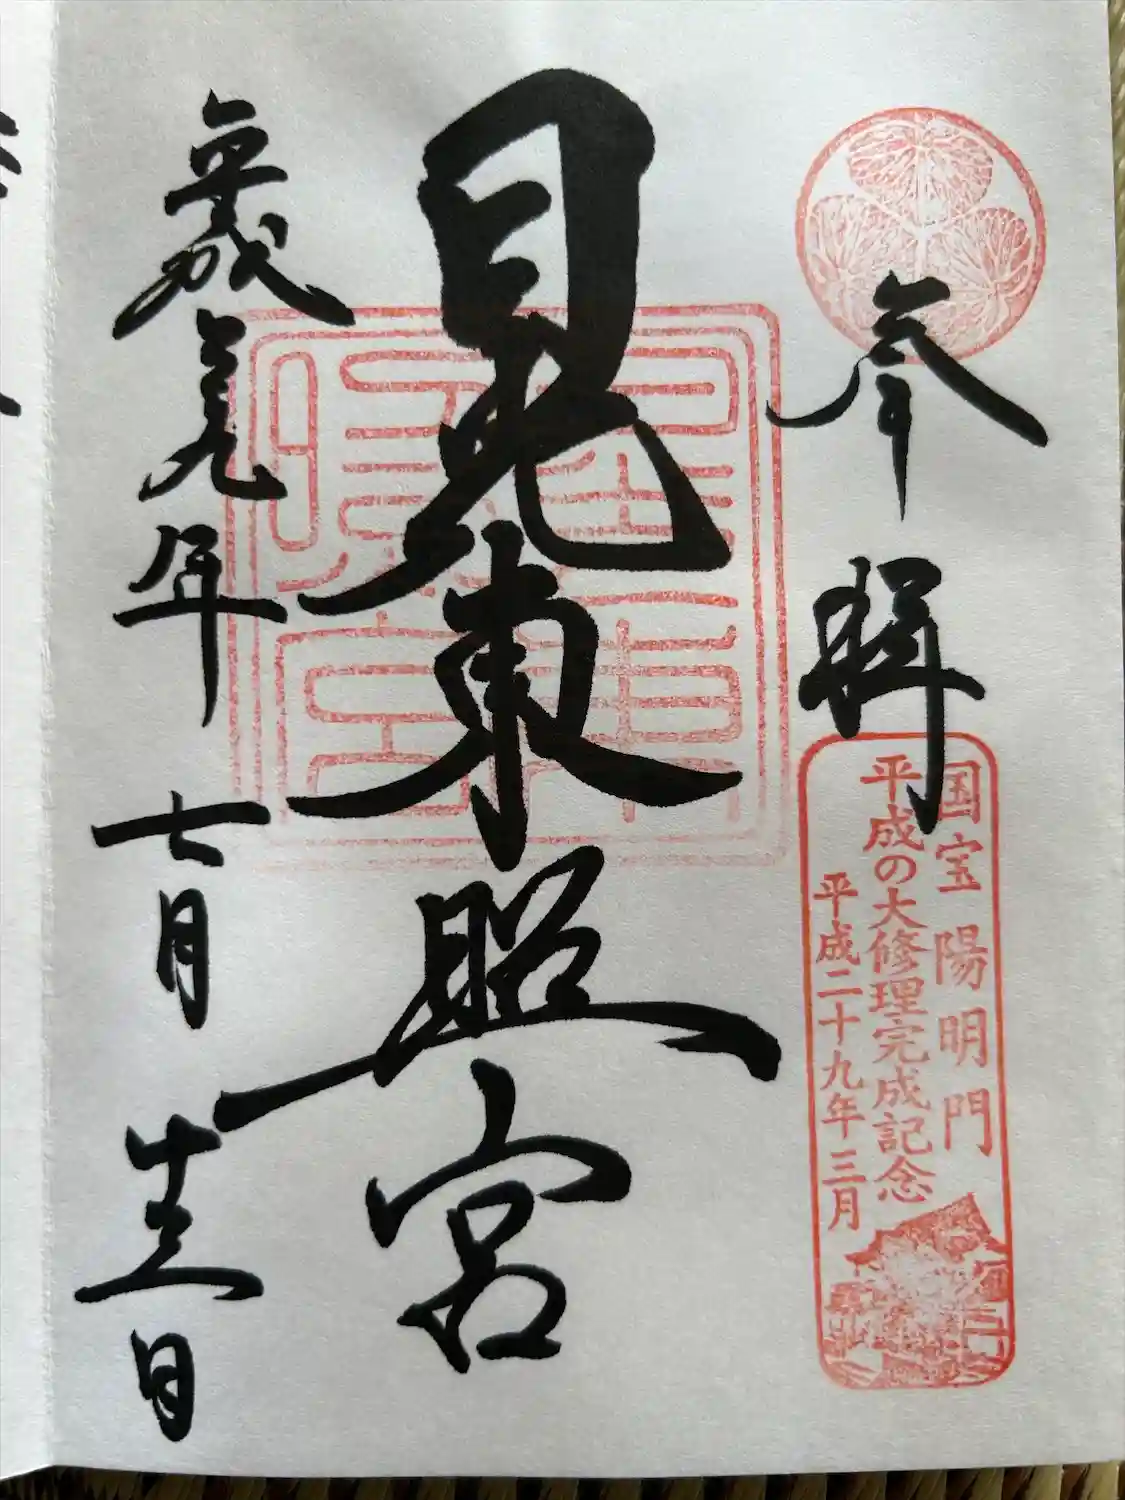 奉拝
国宝 陽明門
平成の大修理完成記念
平成二十九年三月
日光東照宮
平成二九年七月廿三日